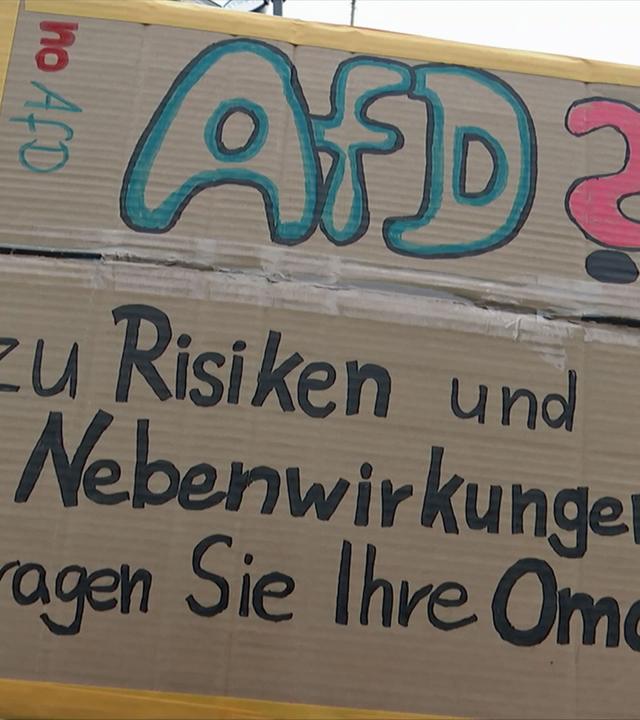 no AfD
AfD?
zu Risiken und
Nebenwirkungen
ragen Sie Ihre Oma